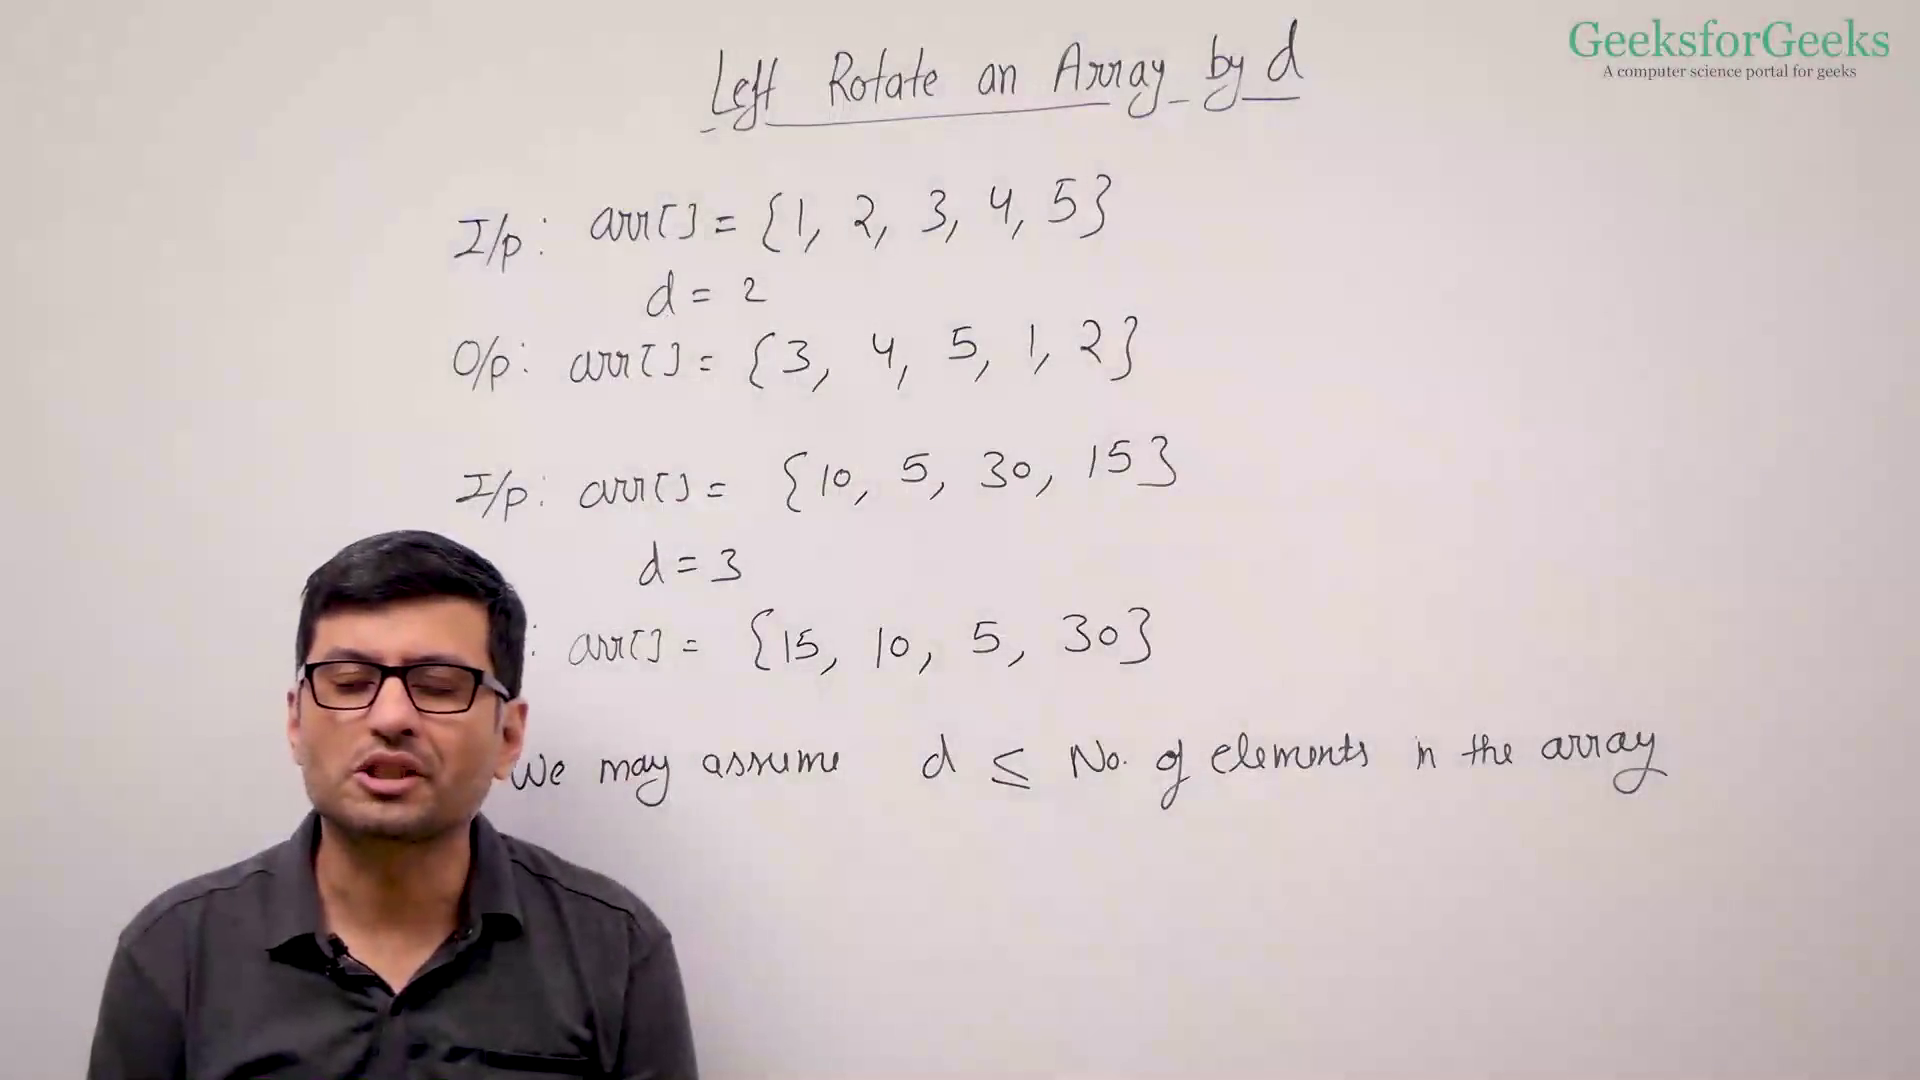 GeeksforGeeks
A computer science portal for geeks
Left Rotate an Array by d
I/p: arr[] = {1, 2, 3, 4, 5}
d = 2
O/p: arr[] = {3, 4, 5, 1, 2}
I/p: arr[] = {10, 5, 30, 15}
d = 3
: arr[] = {15, 10, 5, 30}
We may assume d ≤ No. of elements in the array